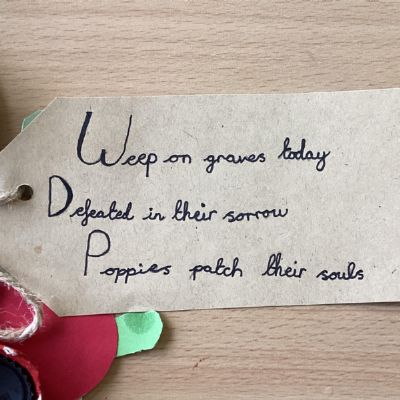 Weep on graves today
Defeated in their sorrow
Poppies patch their souls